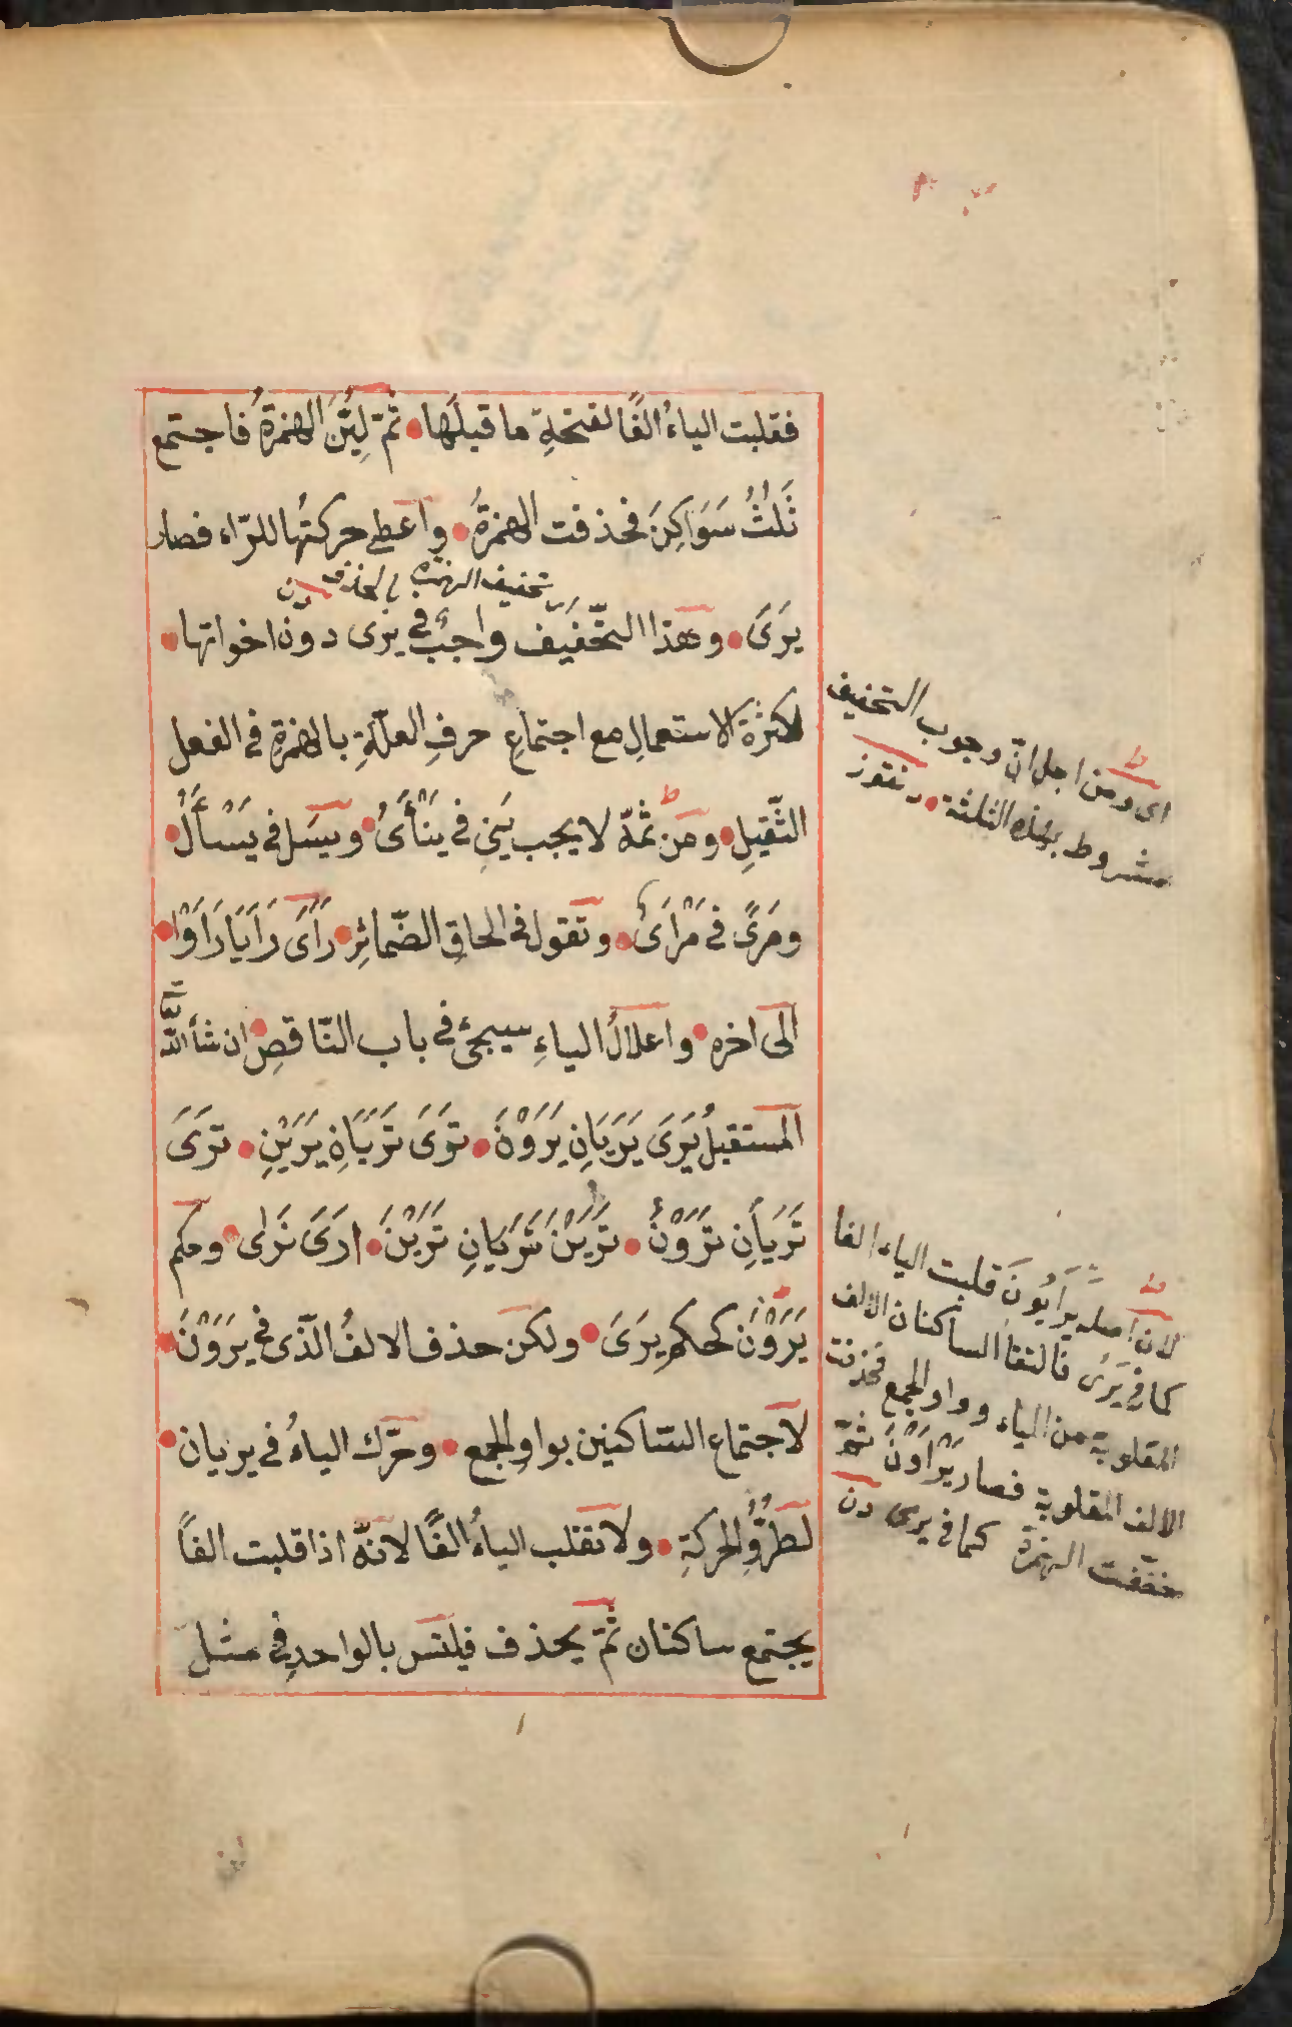 فقلبت الياءُ الفًا لفتحةِ ما قبلَها • ثمّ لُيِّنَ الهمزةُ فاجتمع
ثَلٰثُ سَوَاكِنَ فحذفت الهمزةُ • واعطى حركتُها للرّاء فصار
تخفيف الهمزة بالحذف
يَرَىَ • وهذا التّخفيف واجبٌ في يَرَى دون اخواتها •
لكثرة الاستعمالِ مع اجتماعِ حرفِ العلّةِ بالهمزةِ في الفعل
الثّقيلِ • ومن ثمّه لا يجب يَنَى في يَنْأَىُ • ويَسَل في يَسْأَلُ •
ومَرًى في مَرْأَىً • وتقول في الحاقِ الضّمائرِ • رَأَىَ رَأَيَا رَأَوْا •
الى اخره • واعلالُ الياءِ سيجئ في باب النّاقصِ • ان شأ اللّه
المستقبلُ يَرَىَ يَرَيَانِ يَرَوْنَ • تَرَىَ تَرَيَانِ يَرَيْنَ • تَرَىَ
تَرَيَانِ تَرَوْنَ • تَرَيْنَ تَرَيَانِ تَرَيْنَ • ارَىَ نَرٰى • وحكم
يَرَوْنَ كحكمِ يَرَىَ • ولكن حذف الالفُ الّذى في يَرَوْنَ •
لاجتماع السّاكنين بواوِ الجمع • وحرّك الياءُ في يريان •
لطرُوِّ الحركةِ • ولا تقلب الياءُ الفًا لانّه اذا قلبت الفًا
يجتمع ساكنان ثمّ يحذف فيلتبس بالواحدِ في مثل
اى ومن اجل انّ وجوب التخفيف
مشروط بهذه الثلثة •
لان اصله يرأيُونَ قلبت الياء الفا
كما في يَرَى فالتقا الساكنان الالف
المقلوبة من الياء وواو الجمع فحذفت
الالف المقلوبة فصار يَرْأَوْنَ ثمّ
خفّفت الهمزة كما في يرى